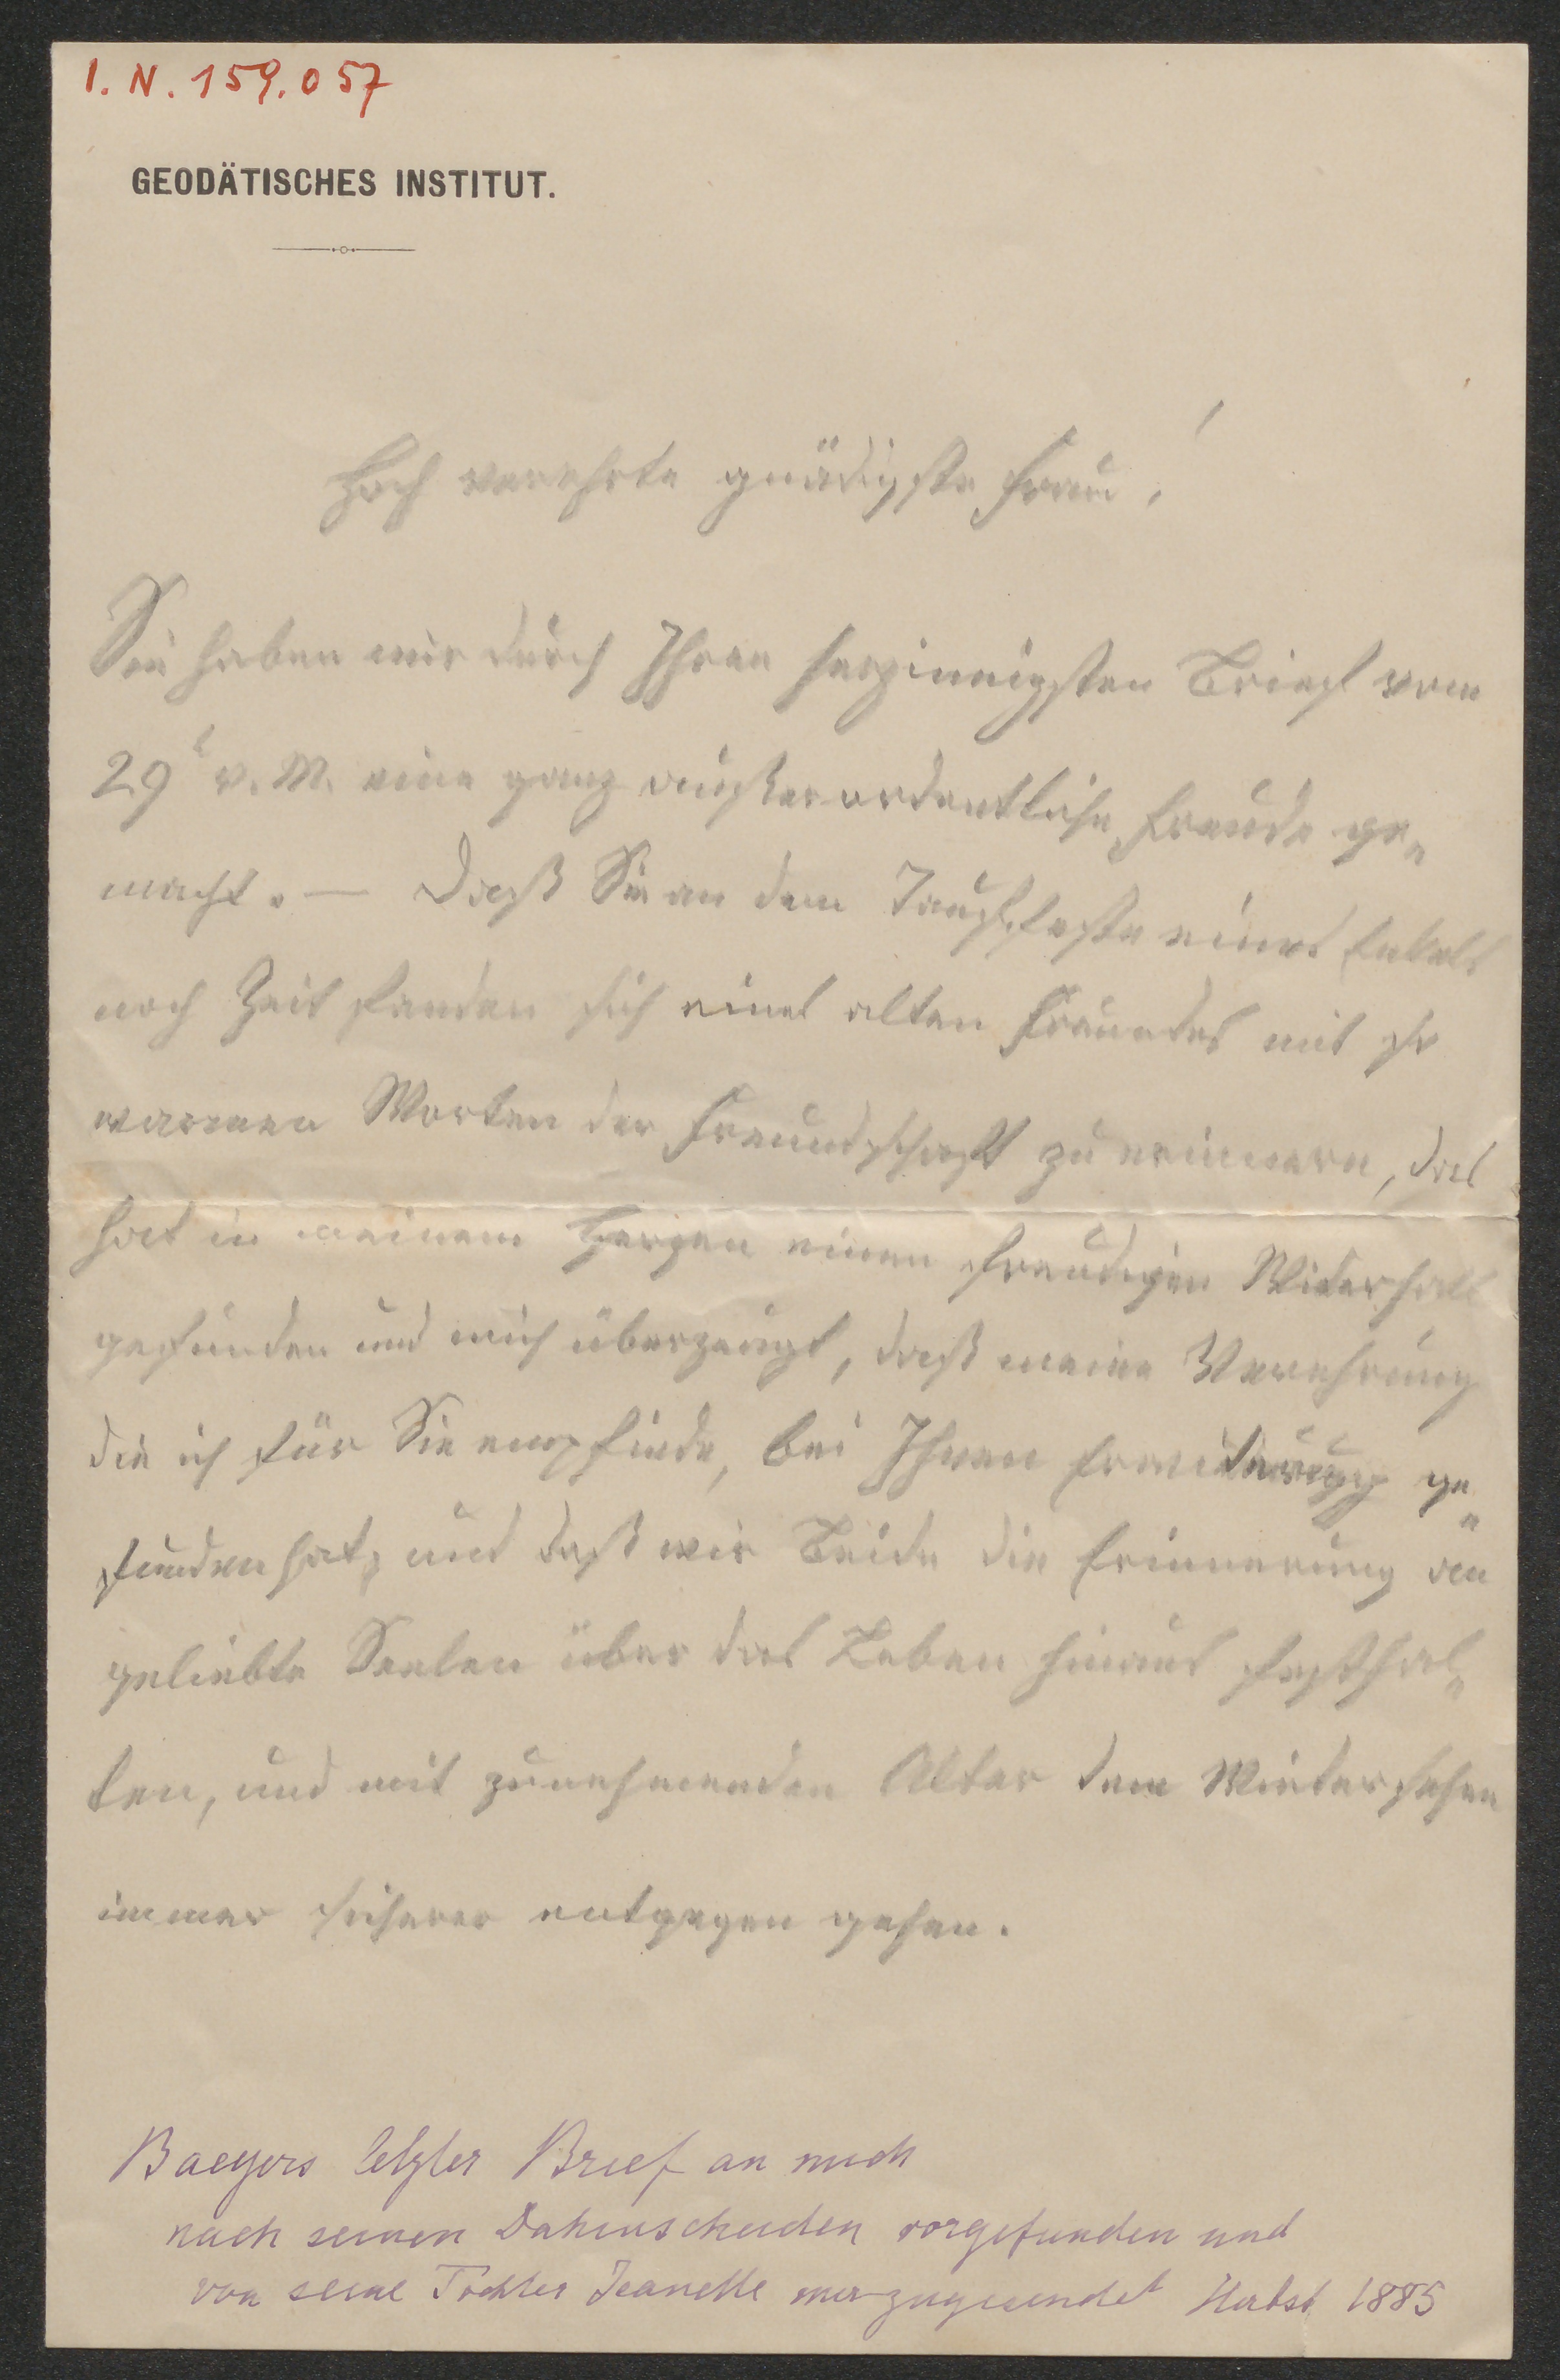 I. N. 159.057
GEODÄTISCHES INSTITUT.
Hoch verehrte gnädigste Frau!
Sie haben mir durch Ihren herzinnigsten Brief vom
29t v. M. eine ganz außerordentliche Freude ge„
macht. — Daß Sie an dem Tauffeste eines Enkels
noch Zeit fanden sich eines alten Freundes mit so
warmen Worten der Freundschaft zu erinnern, das
hat in meinem Herzen einen freudigen Widerhall
gefunden und mich überzeugt, daß meine Verehrung
die ich für Sie empfinde, bei Ihnen Erwiderung ge„
funden hat, und daß wir Beide die Erinnerung an
geliebte Seelen über das Leben hinaus festhal„
ten, und mit zunehmenden Alter dem Wiedersehen
immer sicherer entgegen gehen.
Baeyers letzter Brief an mich
nach seinem Dahinscheiden vorgefunden und
von seine Tochter Jeanette mir zugesendet Herbst 1885